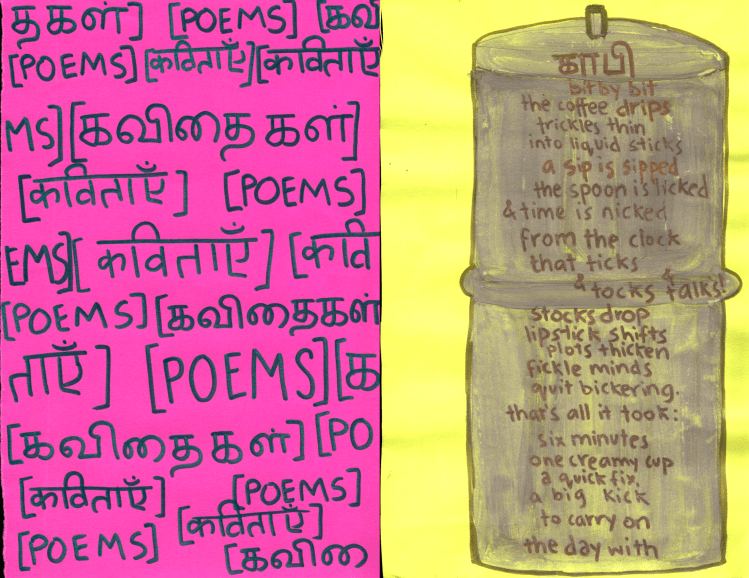 தகள்] [POEMS] [கவி
[POEMS] [कविताएँ][कविताएँ
MS][கவிதைகள்]
[कविताएँ] [POEMS]
EMS][कविताएँ] [कवि
[POEMS] [கவிதைகள்
ताएँ] [POEMS][க
[கவிதைகள்] [PO
[कविताएँ] [POEMS]
[POEMS] [कविताएँ]
[கவிதை
காபி
bit by bit
the coffee drips
trickles thin
into liquid sticks
a sip is sipped
the spoon is licked
& time is nicked
from the clock
that ticks
& tocks & talks!
stocks drop
lipstick shifts
plots thicken
fickle minds
quit bickering.
that's all it took:
six minutes
one creamy cup
a quick fix,
a big kick
to carry on
the day with